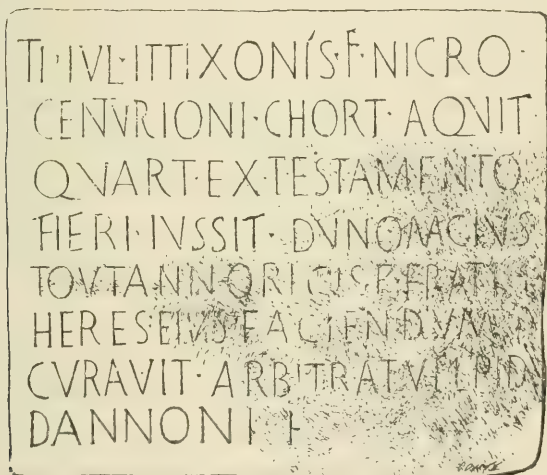 TI·IVL·ITTIXONÍS·F·NICRO·
CENTVRIONI·CHORT·AQVIT
QVART·EX·TESTAMENTO
FIERI·IVSSIT·DVNOMAGIVS
TOVTANNORIGIS F FRATER
HERES EIVS FACIENDVM
CVRAVIT·ARBITRATV
DANNONI F